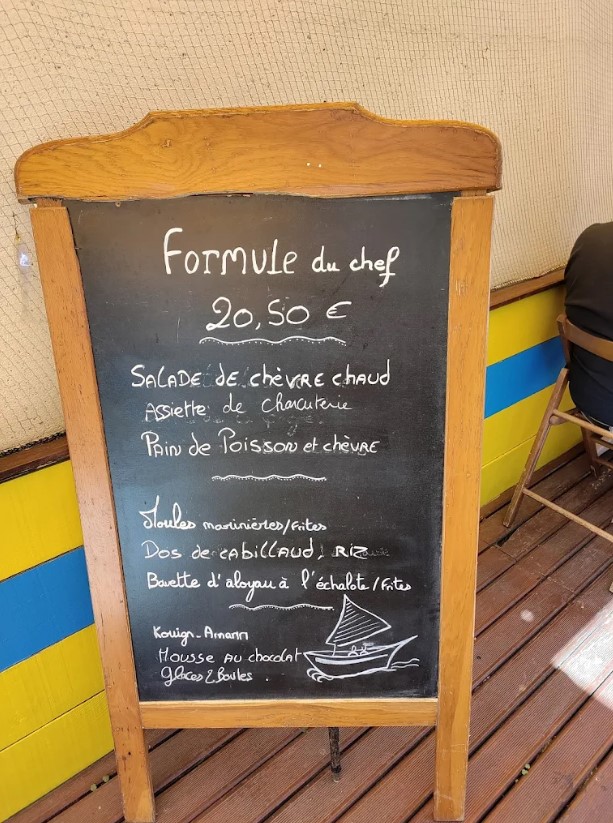 Formule du chef
20,50 €
Salade de chèvre chaud
Assiette de Charcuterie
Pain de Poisson et chèvre
Moules marinières/Frites
Dos de cabillaud / RIZ
Bavette d'aloyau à l'échalote / Frites
Kouign-Amann
Mousse au chocolat
Glaces 2 Boules.